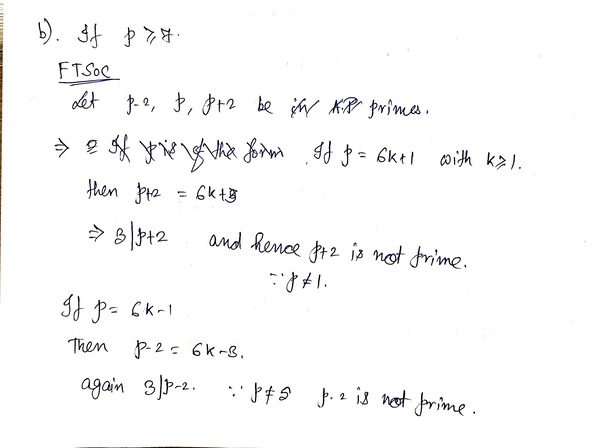 b). If p ≥ 7.
FTSOC
Let p-2, p, p+2 be in AP primes.
⇒ If p is of the form If p = 6k+1 with k≥1.
then p+2 = 6k+3
⇒ 3|p+2 and hence p+2 is not prime.
∵ p≠1.
If p= 6k-1
Then p-2 = 6k-3.
again 3|p-2. ∵ p≠5 p-2 is not prime.